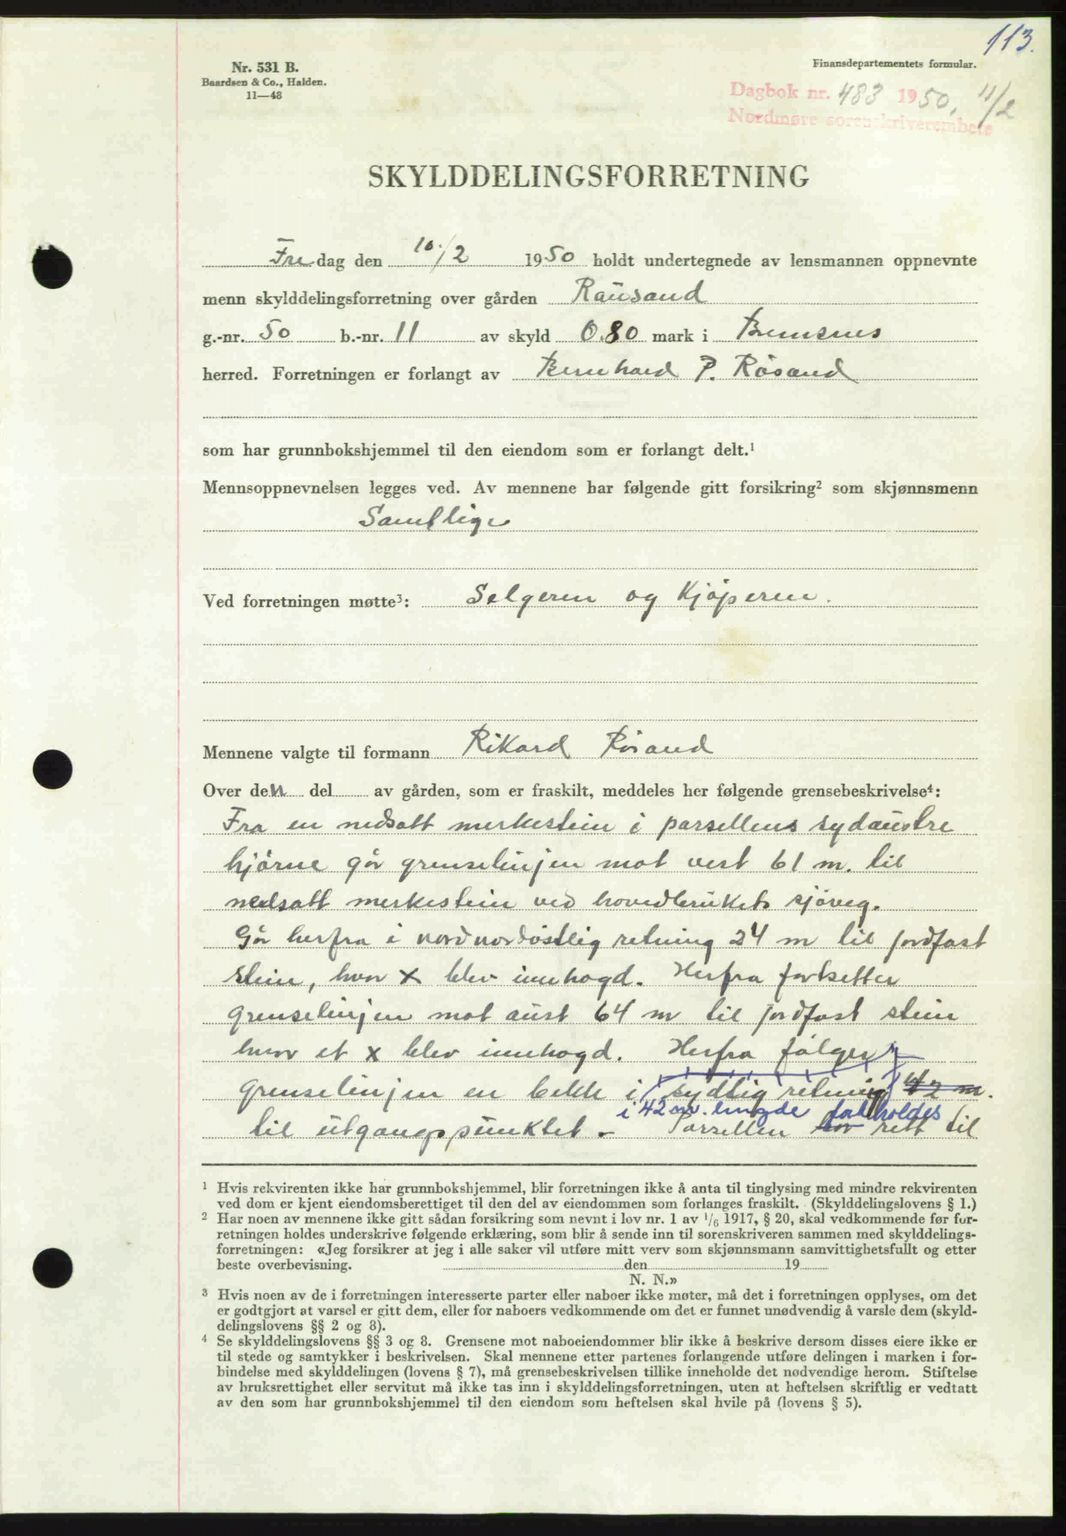 113.
Nr. 531 B.
Baardsen & Co., Halden.
11—48
Finansdepartementets formular.
Dagbok nr. 483 1950, 11/2
Nordmøre sorenskriverembete
SKYLDDELINGSFORRETNING
Fredag den 10./2 1950 holdt undertegnede av lensmannen oppnevnte
menn skylddelingsforretning over gården Rausand
g.-nr. 50 b.-nr. 11 av skyld 0.80 mark i Bremsnes
herred. Forretningen er forlangt av Bernhard P. Røsand
som har grunnbokshjemmel til den eiendom som er forlangt delt.¹
Mennsoppnevnelsen legges ved. Av mennene har følgende gitt forsikring² som skjønnsmenn
Samtlige
Ved forretningen møtte³: Selgeren og Kjøperen.
Mennene valgte til formann Rikard Røsand
Over den del av gården, som er fraskilt, meddeles her følgende grensebeskrivelse⁴:
Fra en nedsatt merkestein i parsellens sydaustre
hjørne går grenselinjen mot vest 61 m. til
nedsatt merkestein ved hovedbrukets sjøveg.
Går herfra i nordnordøstlig retning 24 m til jordfast
stein, hvor x blev innhogd. Herfra fortsetter
grenselinjen mot aust 64 m til jordfast stein
hvor et x blev innhogd. Herfra følger
grenselinjen en bekk i sydlig retning 42 m.
i 42 m. lengde forbeholdes
til utgangspunktet. - Parsellen har rett til
¹ Hvis rekvirenten ikke har grunnbokshjemmel, blir forretningen ikke å anta til tinglysing med mindre rekvirenten
ved dom er kjent eiendomsberettiget til den del av eiendommen som forlanges fraskilt. (Skylddelingslovens § 1.)
² Har noen av mennene ikke gitt sådan forsikring som nevnt i lov nr. 1 av 1/6 1917, § 20, skal vedkommende før for-
retningen holdes underskrive følgende erklæring, som blir å sende inn til sorenskriveren sammen med skylddelings-
forretningen: «Jeg forsikrer at jeg i alle saker vil utføre mitt verv som skjønnsmann samvittighetsfullt og etter
beste overbevisning. den 19
N. N.»
³ Hvis noen av de i forretningen interesserte parter eller naboer ikke møter, må det i forretningen opplyses, om det
er godtgjort at varsel er gitt dem, eller for naboers vedkommende om det er funnet unødvendig å varsle dem (skyld-
delingslovens §§ 2 og 8).
⁴ Se skylddelingslovens §§ 3 og 8. Grensene mot naboeiendommer blir ikke å beskrive dersom disses eiere ikke er
til stede og samtykker i beskrivelsen. Skal mennene etter partenes forlangende utføre delingen i marken i for-
bindelse med skylddelingen (lovens § 7), må grensebeskrivelsen tillike inneholde det nødvendige herom. Stiftelse
av bruksrettighet eller servitut må ikke tas inn i skylddelingsforretningen, uten at heftelsen skriftlig er vedtatt
av den som har grunnbokshjemmel til den eiendom som heftelsen skal hvile på (lovens § 5).